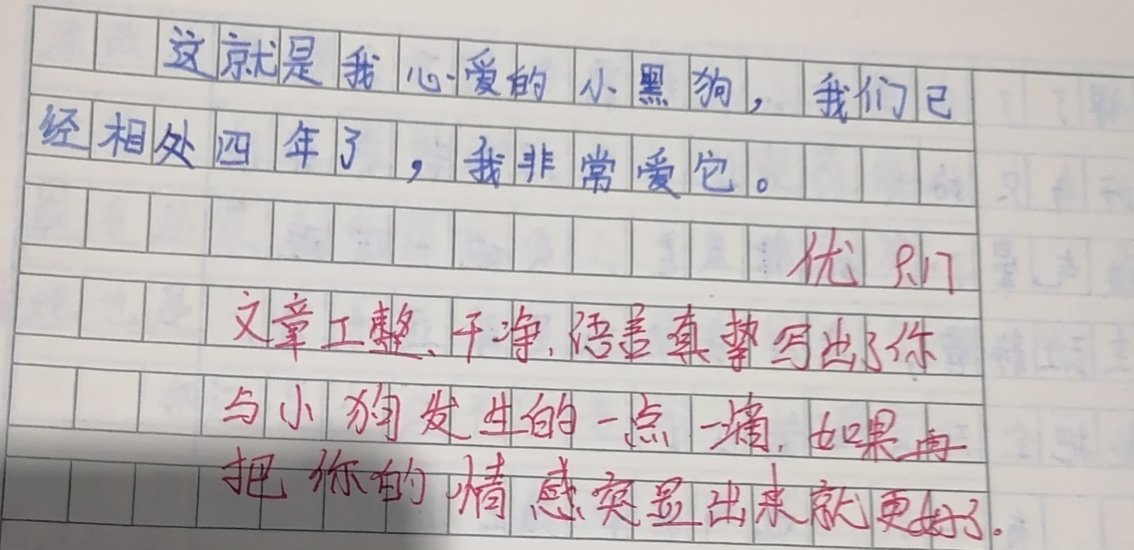 这就是我心爱的小黑狗，我们已
经相处四年了，我非常爱它。
优
文章工整、干净，语言真挚写出了你
与小狗发生的一点一滴，如果再
把你的情感突显出来就更好了。